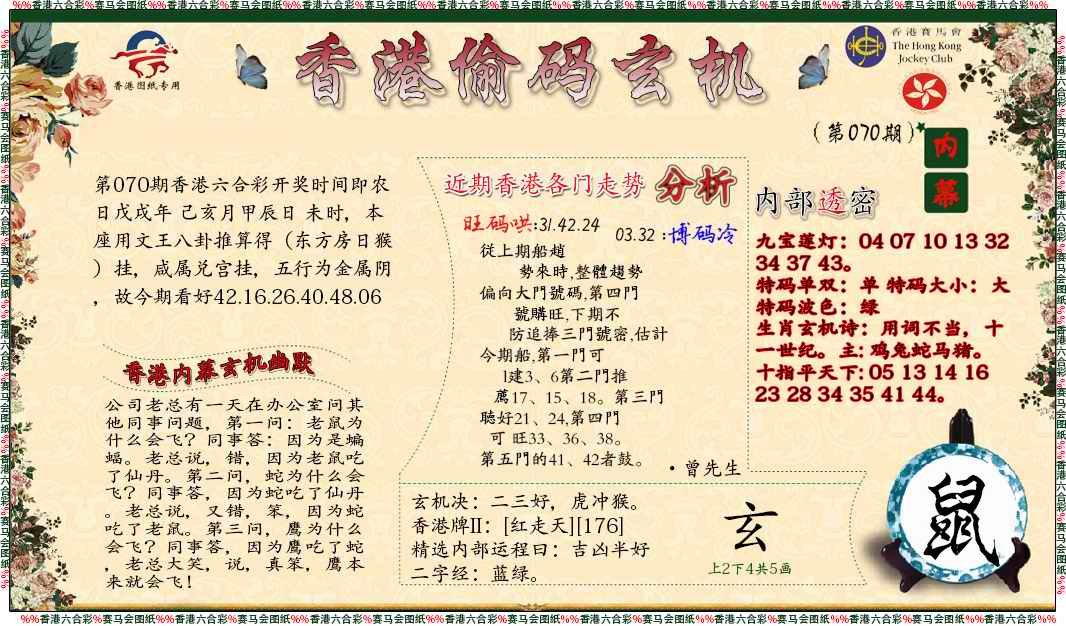 %%香港六合彩%赛马会图纸%%香港六合彩%赛马会图纸%%香港六合彩%赛马会图纸%%香港六合彩%赛马会图纸%%香港六合彩%赛马会图纸%%香港六合彩%赛马会图纸%%香港六合彩%%
香港图纸专用
香港偷码玄机
香港賽馬會
The Hong Kong
Jockey Club
(第070期)
内
幕
第070期香港六合彩开奖时间即农
日戊戌年 己亥月甲辰日 未时，本
座用文王八卦推算得（东方房日猴
）挂，咸属兑宫挂，五行为金属阴
，故今期看好42.16.26.40.48.06
香港内幕玄机幽默
公司老总有一天在办公室问其
他同事问题，第一问：老鼠为
什么会飞？同事答：因为是蝙
蝠。老总说，错，因为老鼠吃
了仙丹。第二问，蛇为什么会
飞？同事答，因为蛇吃了仙丹
。老总说，又错，笨，因为蛇
吃了老鼠。第三问，鹰为什么
会飞？同事答，因为鹰吃了蛇
，老总大笑，说，真笨，鹰本
来就会飞！
近期香港各门走势 分析
旺码哄:31.42.24
03.32 :博码冷
從上期船趙
勢來時,整體趨勢
偏向大門號碼,第四門
號購旺,下期不
防追捧三門號密,估計
今期船,第一門可
1建3、6第二門推
薦17、15、18。第三門
聽好21、24,第四門
可 旺33、36、38。
第五門的41、42者鼓。
·曾先生
内部透密
九宝莲灯：04 07 10 13 32
34 37 43。
特码单双：单 特码大小：大
特码波色：绿
生肖玄机诗：用词不当，十
一世纪。主: 鸡兔蛇马猪。
十指平天下: 05 13 14 16
23 28 34 35 41 44。
玄机决：二三好，虎冲猴。
香港牌II：[红走天][176]
精选内部运程曰：吉凶半好
二字经：蓝绿。
玄
上2下4共5画
鼠
%%香港六合彩%赛马会图纸%%香港六合彩%赛马会图纸%%香港六合彩%赛马会图纸%%香港六合彩%赛马会图纸%%香港六合彩%赛马会图纸%%香港六合彩%赛马会图纸%%香港六合彩%%